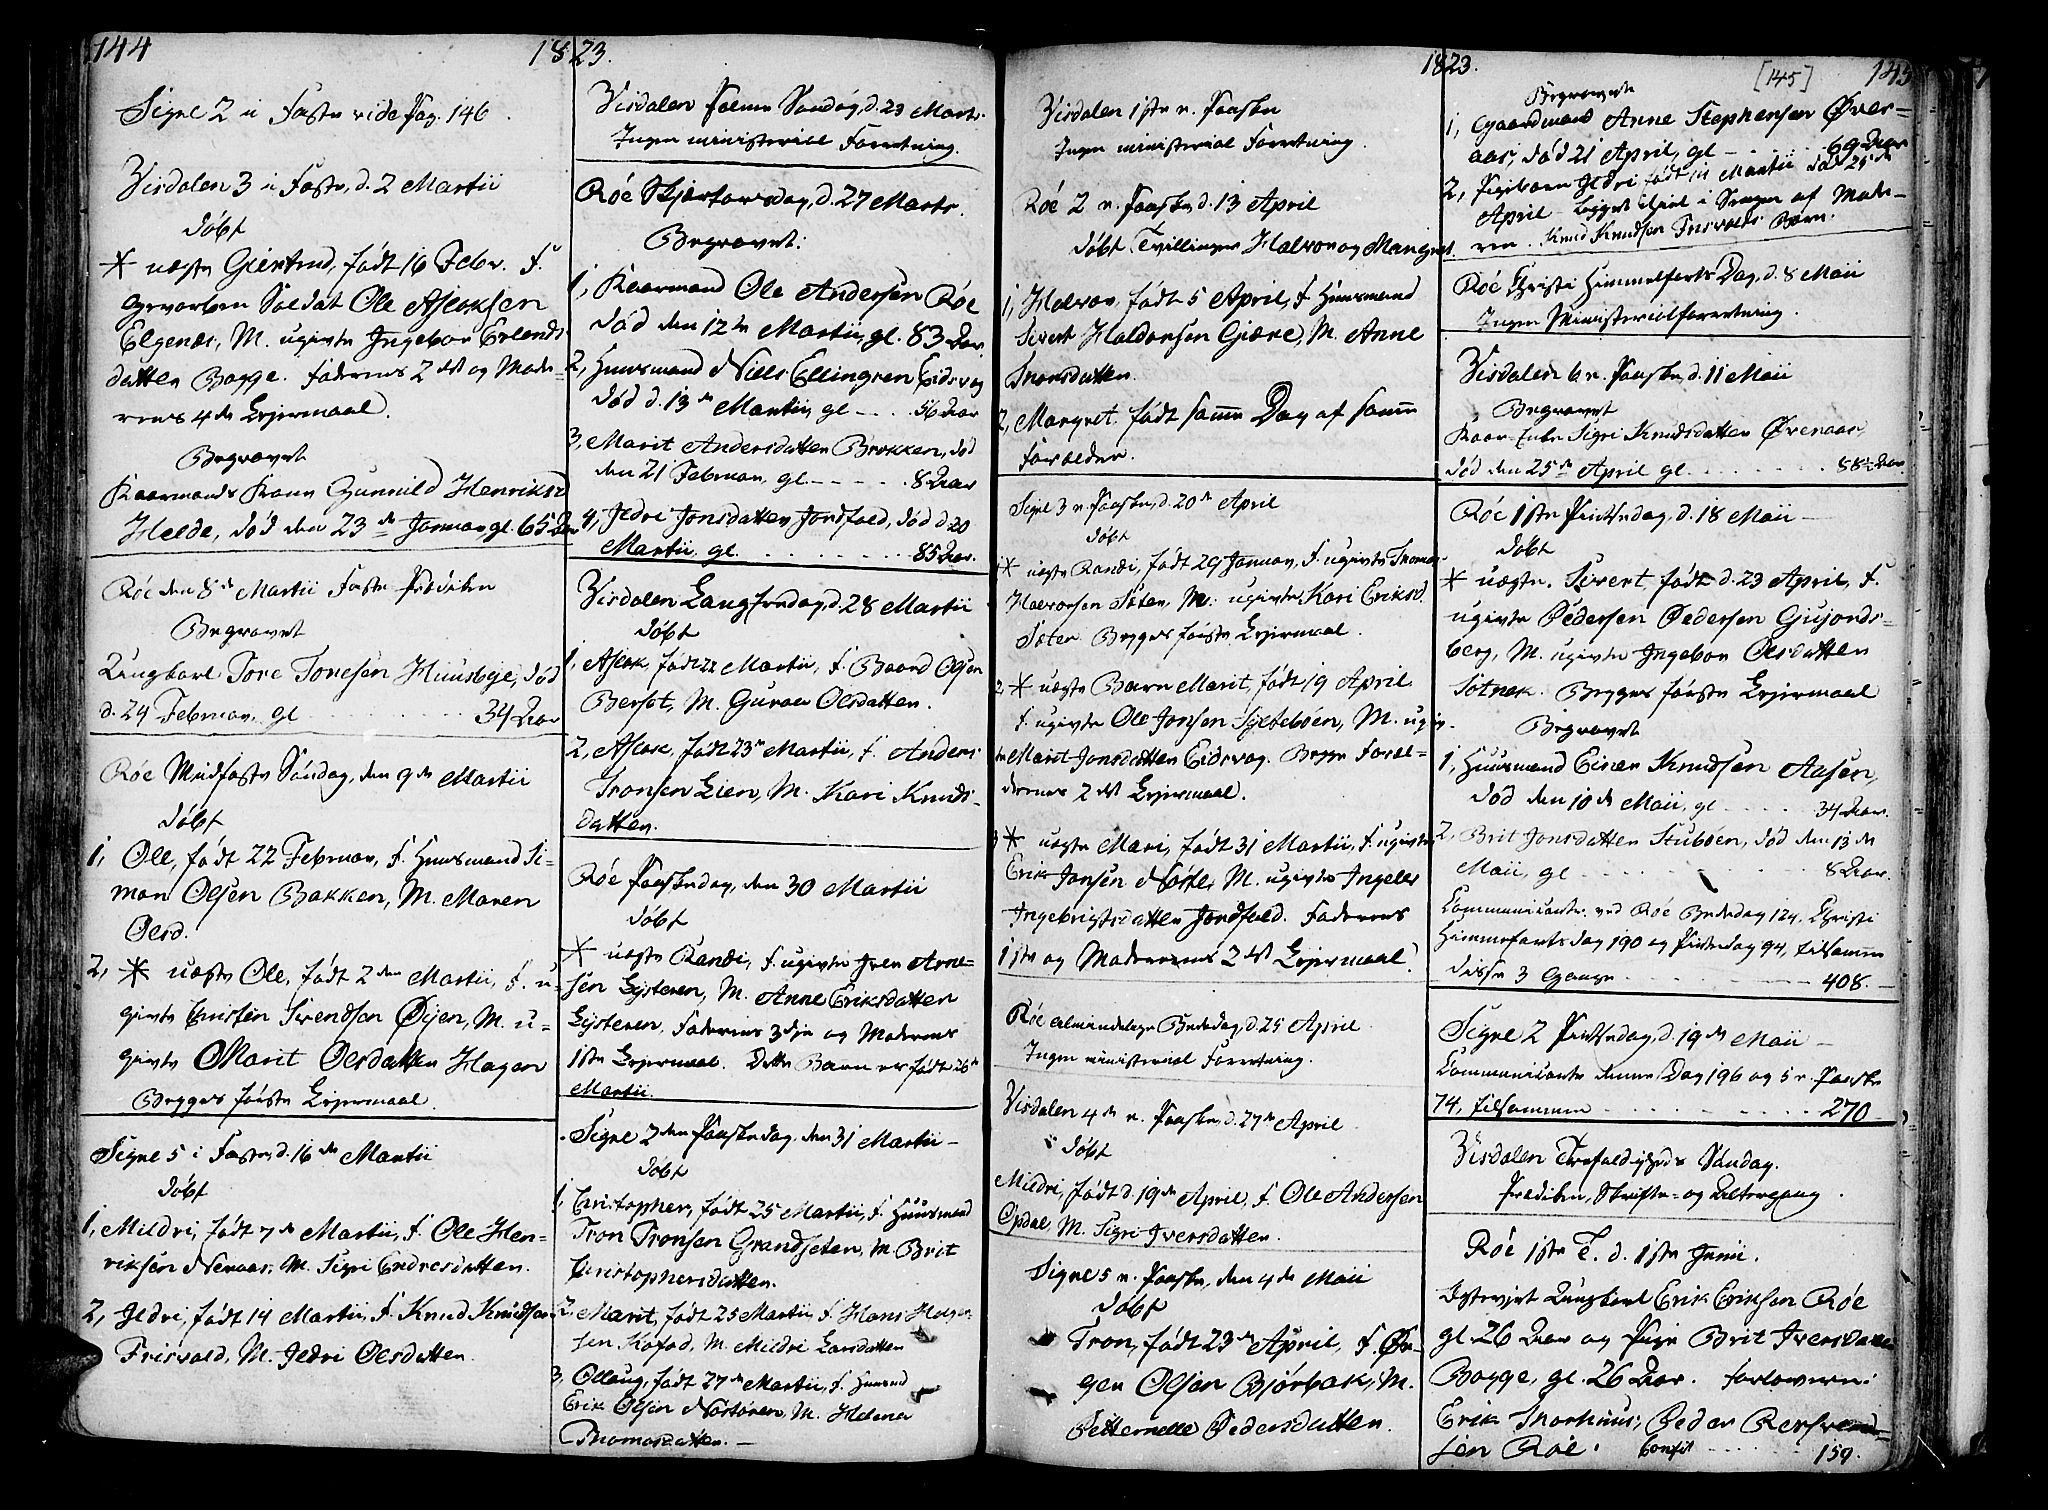 144
1823.
Signe 2 i Faste vide Pag. 146.
Visdalen 3 i Faste, d. 2 Martii
døbt
* uægte Giertrud, født 16 Febr. F.
gevorben Soldat Ole Aslaksen
Elgenæs, M. ugivte Ingebor Erlends
datten Bogge. Faderens 2det og Mode-
rens 4de Lejermaal.
Begravet
Kaarmands Kone Gunnild Henriksd
Heede, død den 23de Januar, gl. 65 Aar
Røe den 8de Martii Faste-Prædiken
Begravet
Ungkarl Tore Toresen Huusbye, død
d. 24 Februar, gl. 34 Aar
Røe Midfaste Søndag, den 9de Martii
døbt
1, Ole, født 22 Februar, F. Huusmand Si-
mon Olsen Bakken, M. Maren
Olsd.
2, * uægte Ole, født 2den Martii, F. u-
givte Christen Svendsen Øyen, M. u-
givte Marit Olsdatten Hagen
Begges første Lejermaal.
Signe 5 i Faste, d. 16de Martii
døbt
1, Mildri, født 7de Martii, F. Ole Hen-
riksen Neraas, M. Sigri Endresdatten.
2, Jldri, født 14 Martii, F. Knud Knudsen
Frisvold, M. Jldri Olsdatten.
Visdalen Palme Søndag, d. 23 Marts.
Ingen ministerial Forretning.
Røe Skjertorsdag, d. 27 Marts.
Begravet:
1, Kaarmand Ole Andersen Røe
død den 12te Martii, gl. 83 Aar.
2, Huusmand Niels Ellingsen Eidsvog
død d. 13de Martii, gl. 56 Aar
3, Marit Andersdatten Brekken, død
den 21 Februar, gl. 8 Aar
4, Jldri Jonsdatten Jordfald, død d. 20
Martii, gl. 85 Aar.
Visdalen Langfredag, d. 28 Martii
døbt
1, Aslak, født 22 Martii, F. Baard Olsen
Bersøt, M. Guroe Olsdatten.
2, Aslak, født 23de Martii, F. Anders
Tronsen Lien, M. Kari Knuds-
datten.
Røe Paaskedag, den 30 Martii
døbt
* uægte Randi, F. ugivte Iver Arne-
sen Lysteren, M. Anne Eriksdatten
Lysteren, Faderens 3die og Moderens
1ste Lejermaal. Dette Barn er født 26de
Martii.
Signe 2den Paaskedag, den 31 Martii
døbt
1, Christopher, født 25 Martii, F. Huusmand
Tron Tronsen Grandsetén, M. Brit
Christophersdatten.
2, Marit, født 25 Martii, F. Hans
sen Kafod, M. Mildri Larsdatten
3, Ollaug, født 27de Martii, F. Huusmd
Erik Olsen Norstøren, M. Helena
Thomasdatten.
1823.
[145] 145
Visdalen 1ste e. Paaske
Ingen ministerial Forretning.
Røe 2 e. Paaske, d. 13 April
døbt Tvillinger Halvor og Margret
1, Halvor, født 5 April, F. Huusmand
Sivert Haldorsen Giære, M. Anne
Tronsdatten.
2, Margret født samme Dag af samme
Forælder.
Signe 3 e. Paaske, d. 20de April
døbt
1 * uægte Randi, født 29 Januar, F. ugivte Thomas
Halvorsen Søter, M. ugivte Kari Eriksd.
Søter Begges første Lejermaal.
2, * uægte Barn Marit, født 19 April
F. ugivte Ole Jonsen Syltebøen, M. ugiv-
te Marit Jonsdatten Eidsvog. Begge Foræl-
dernes 2det Lejermaal.
3 * uægte Mari, født 31 Martii, F. ugivte
Erik Jonsen Nøste, M. ugivte Ingeler
Ingebrigtsdatten Jordfald. Faderens
1ste og Moderens 2det Lejermaal.
Røe almindelige Bededag, d. 25 April
Ingen ministerial Forretning.
Visdalen 4de e. Paaske, d. 27de April
døbt
Mildri, født d. 19de April, F. Ole Andersen
Opdal, M. Sigri Iversdatten.
Signe 5 e. Paaske, den 4de Maii
døbt
Tron, født 23de April, F. Ør-
gen Olsen Bjørbak, M.
Petternelle Pedersdatten.
Begravet
1, Gaardmand Anne Stephensen Øver-
aas, død 21 April, gl. 69 Aar
2, Pigebarn Jldri født 14 Martii død 25de
April ligget ihjel i Sengen af Mode-
ren. Knud Knudsen Frisvolds Barn.
Røe Christi Himmelfarts Dag, d. 8 Maii
Ingen Ministerialforretning.
Visdalen 6 e. Paaske, d. 11 Maii
Begravet
Kaar-Enke Sigri Knudsdatten Øveraas,
død den 25de April gl. 88 Aar
Røe 1ste Pintsedag, d. 18 Maii
døbt
* uægte. Sivert, født d. 23 April, F.
ugivte Pedersen Pedersen Gujords-
berg, M. ugivte Ingebor Olsdatten
Sotnak. Begges første Lejermaal
Begravet
1, Huusmand Einer Knudsen Aasen,
død den 10de Maii, gl. 34 Aar.
2, Brit Jonsdatten Stubøen, død den 13de
Maii, gl. 8 Aar.
Communicante. ved Røe Bededag 124, Christi
Himmelfartsdag 190 og Pintsedag 94, tilsammen
disse 3 Gange 408.
Signe 2 Pintsedag, d. 19de Maii
Communicante denne Dag 196 og 5 e. Paaske
74, tilsammen 270
Visdalen Trefoldigheds Søndag.
Prædiken, Skrifte- og Altergang.
Røe 1ste T. d. 1ste Junii.
Ægteviet Ungkarl Erik Eriksen Røe
gl. 26 Aar og Pige Brit Iversdatten
Bogge, gl. 26 Aar. Forlovere:
Erik Thorhuus, Peder
sen Røe. Confit 159.